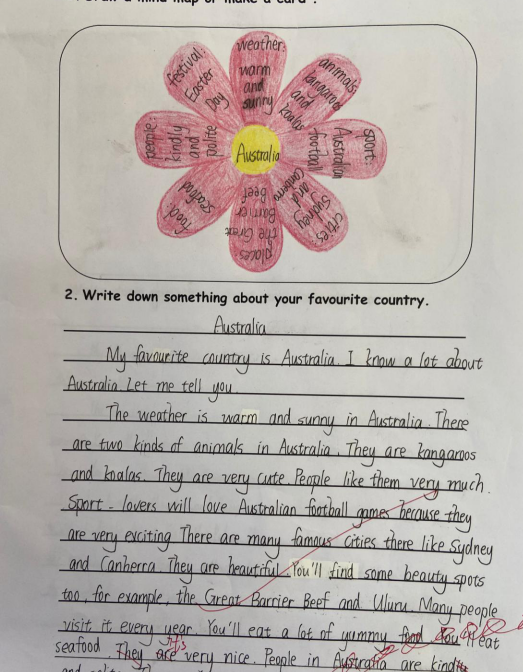 weather:
warm
and
sunny
animals
kangaroos
and
koalas
sport:
Australian
football
cities:
Sydney
and
Canberra
places
the Great
Barrier
Beef
food
seafood
people:
kindly
and
polite
festival:
Easter
Day
Australia
2. Write down something about your favourite country.
Australia
My favourite country is Australia. I know a lot about
Australia. Let me tell you.
The weather is warm and sunny in Australia. There
are two kinds of animals in Australia. They are kangaroos
and koalas. They are very cute. People like them very much.
Sport-lovers will love Australian football games, because they
are very exciting There are many famous cities there like Sydney
and Canberra. They are beautiful. You'll find some beauty spots
too, for example, the Great Barrier Beef and Uluru. Many people
visit it every year. You'll eat a lot of yummy food
seafood. They are very nice. People in Australia are